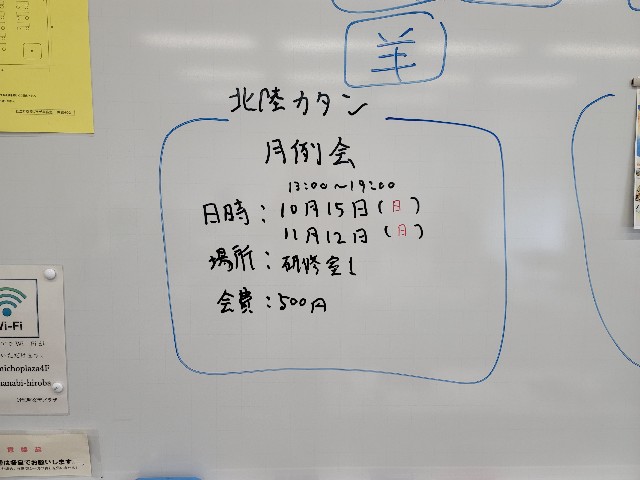 羊
北陸カタン
月例会
13:00～19:00
日時：10月15日(日)
11月12日(日)
場所：研修室1
会費：500円
Wi-Fi
michoplaza4F
manabi-hiroba